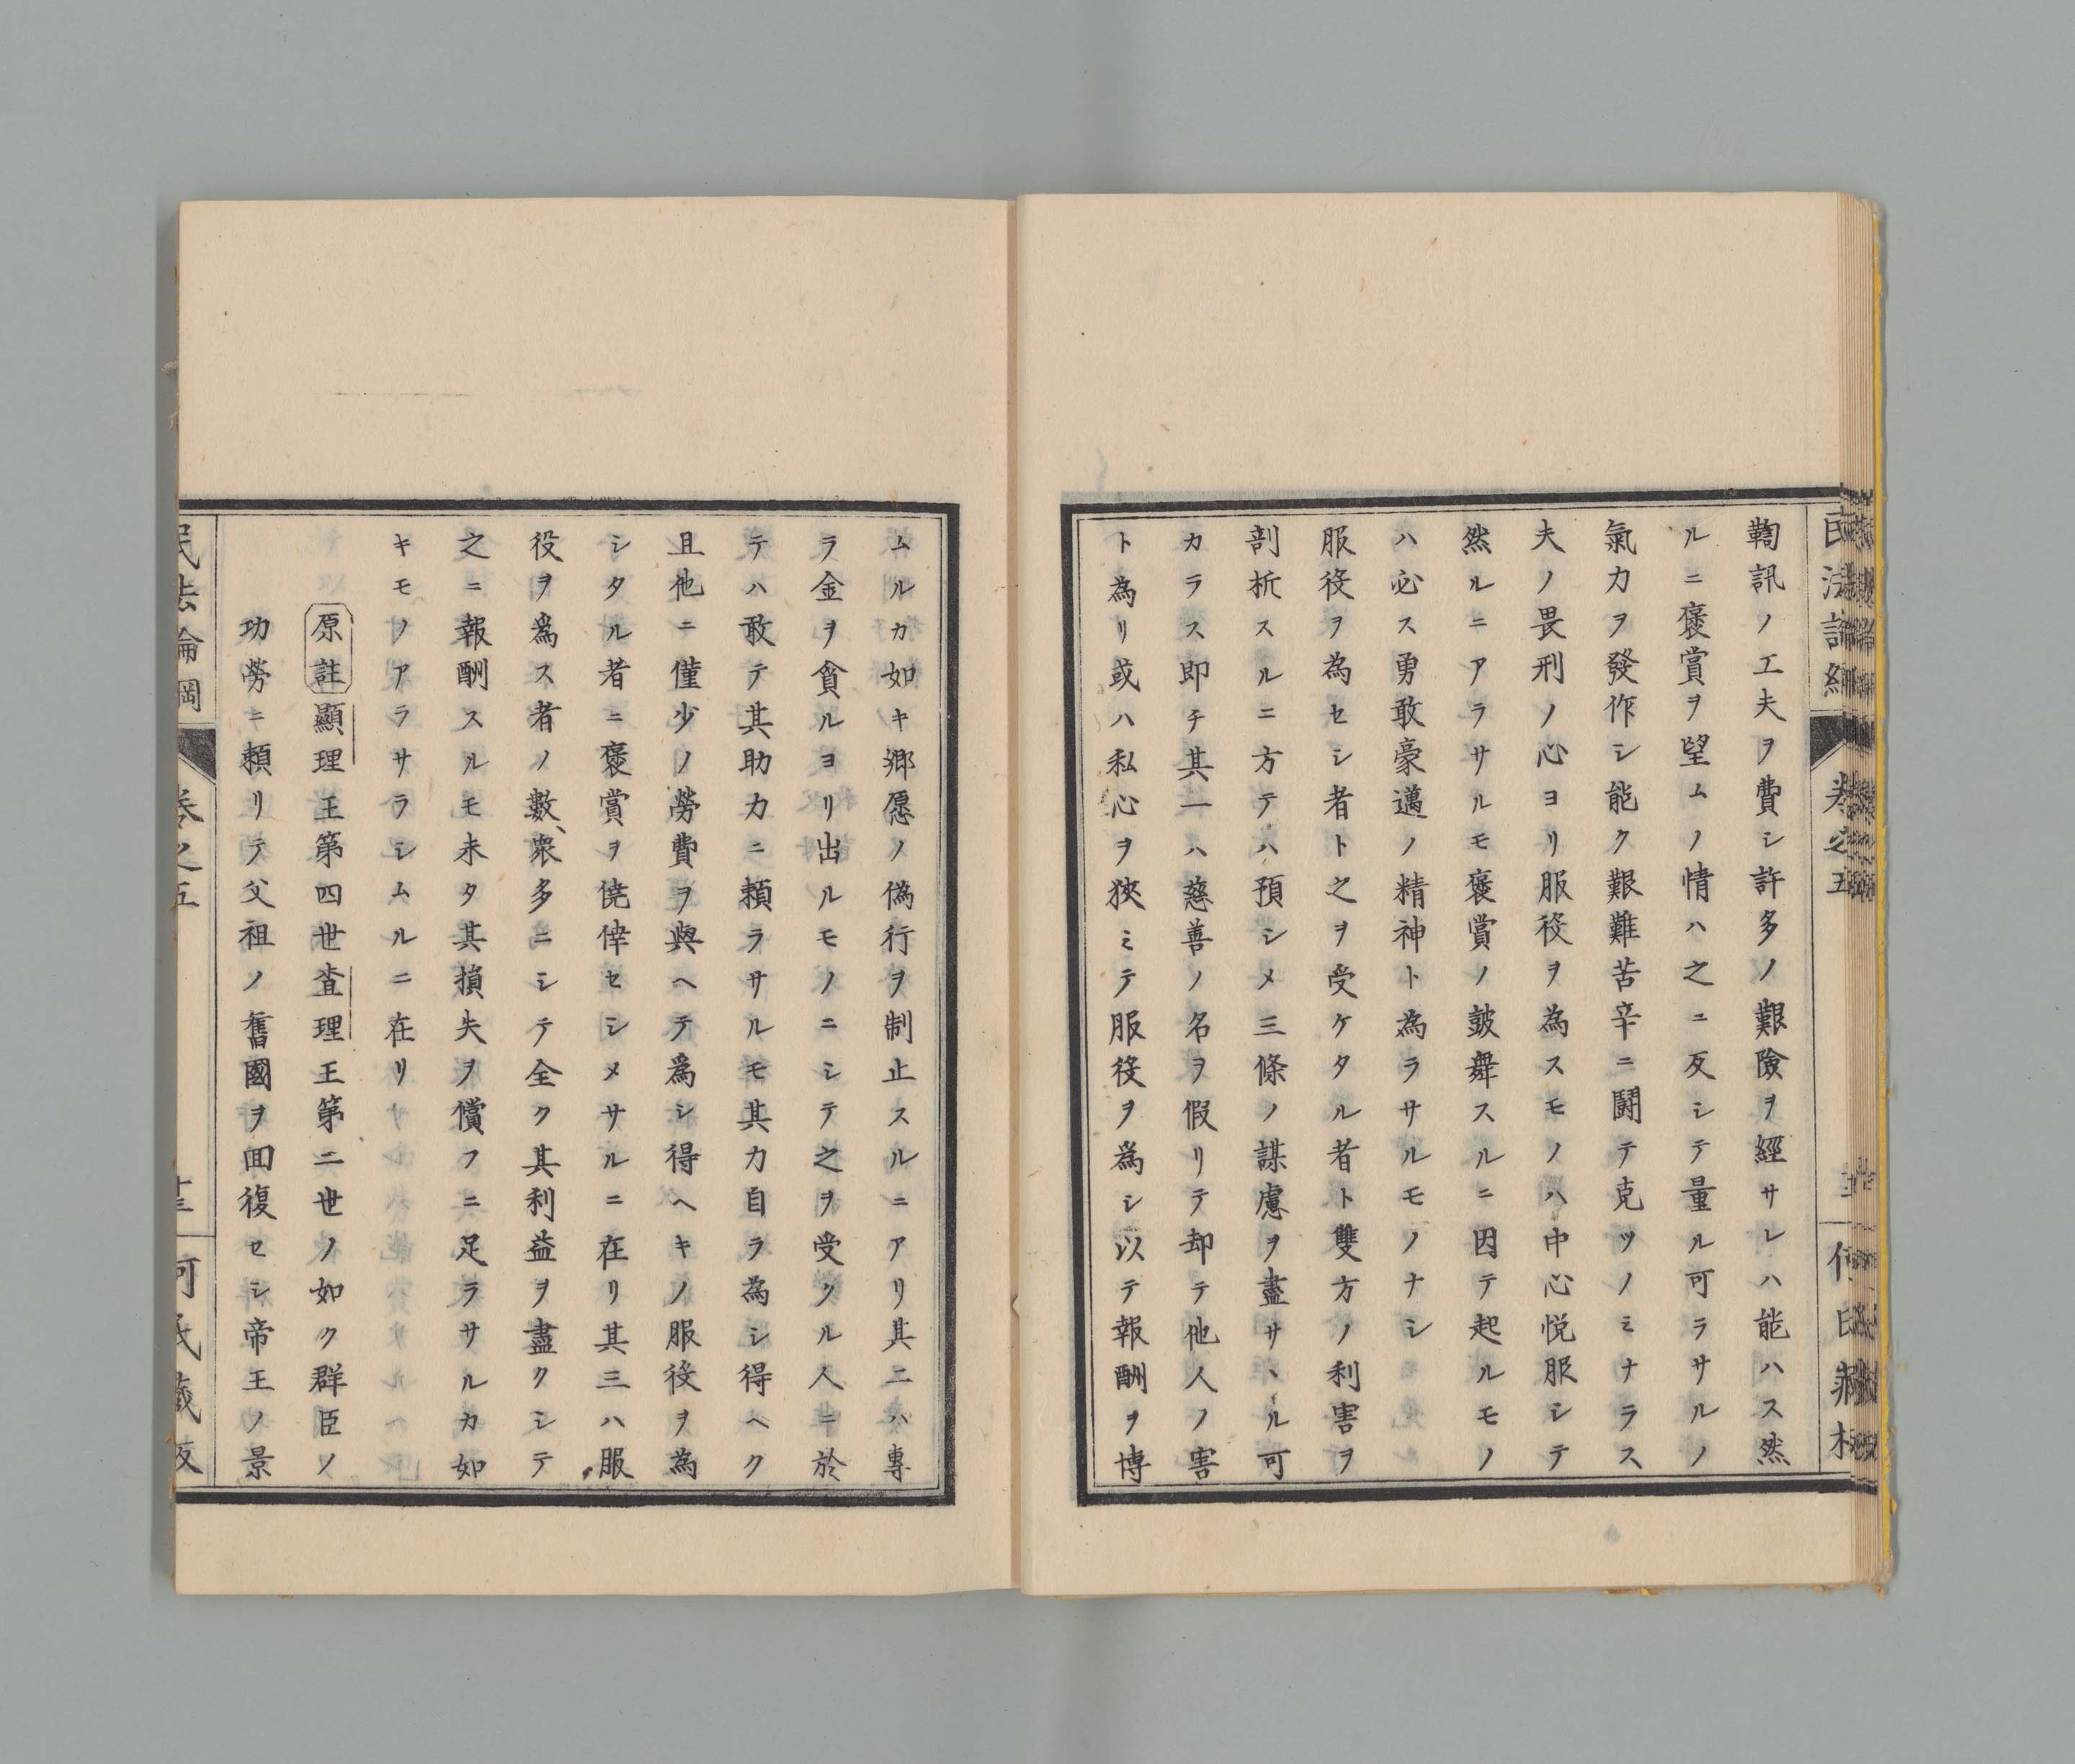 鞫訊ノ工夫ヲ費シ許多ノ艱險ヲ經サレハ能ハス然
ルニ褒賞ヲ望ムノ情ハ之ニ反シテ量ル可ラサルノ
氣力ヲ發作シ能ク艱難苦辛ニ鬪テ克ツノミナラス
夫ノ畏刑ノ心ヨリ服役ヲ為スモノハ中心悦服シテ
然ルニアラサルモ褒賞ノ皷舞スルニ因テ起ルモノ
ハ必ス勇敢豪邁ノ精神ト為ラサルモノナシ
服役ヲ為セシ者ト之ヲ受ケタル者ト雙方ノ利害ヲ
剖析スルニ方テハ預シメ三條ノ謀慮ヲ盡サヽル可
カラス即チ其一ハ慈善ノ名ヲ假リテ却テ他人ノ害
ト為リ或ハ私心ヲ狹ミテ服役ヲ為シ以テ報酬ヲ博
ムルカ如キ鄉愿ノ偽行ヲ制止スルニアリ其二ハ專
ラ金ヲ貪ルヨリ出ルモノニシテ之ヲ受クル人ニ於
テハ敢テ其助力ニ賴ラサルモ其力自ラ為シ得ヘク
且他ニ僅少ノ勞費ヲ與ヘテ爲シ得ヘキノ服役ヲ為
シタル者ニ褒賞ヲ僥倖セシメサルニ在リ其三ハ服
役ヲ爲ス者ノ數衆多ニシテ全ク其利益ヲ盡クシテ
之ニ報酬スルモ未タ其損失ヲ償フニ足ラサルカ如
キモノアラサラシムルニ在リ
原註顯理王第四世査理王第二世ノ如ク群臣ノ
功勞ニ賴リテ父祖ノ舊國ヲ回復セシ帝王ノ景
民法論綱 卷之五 何氏藏版